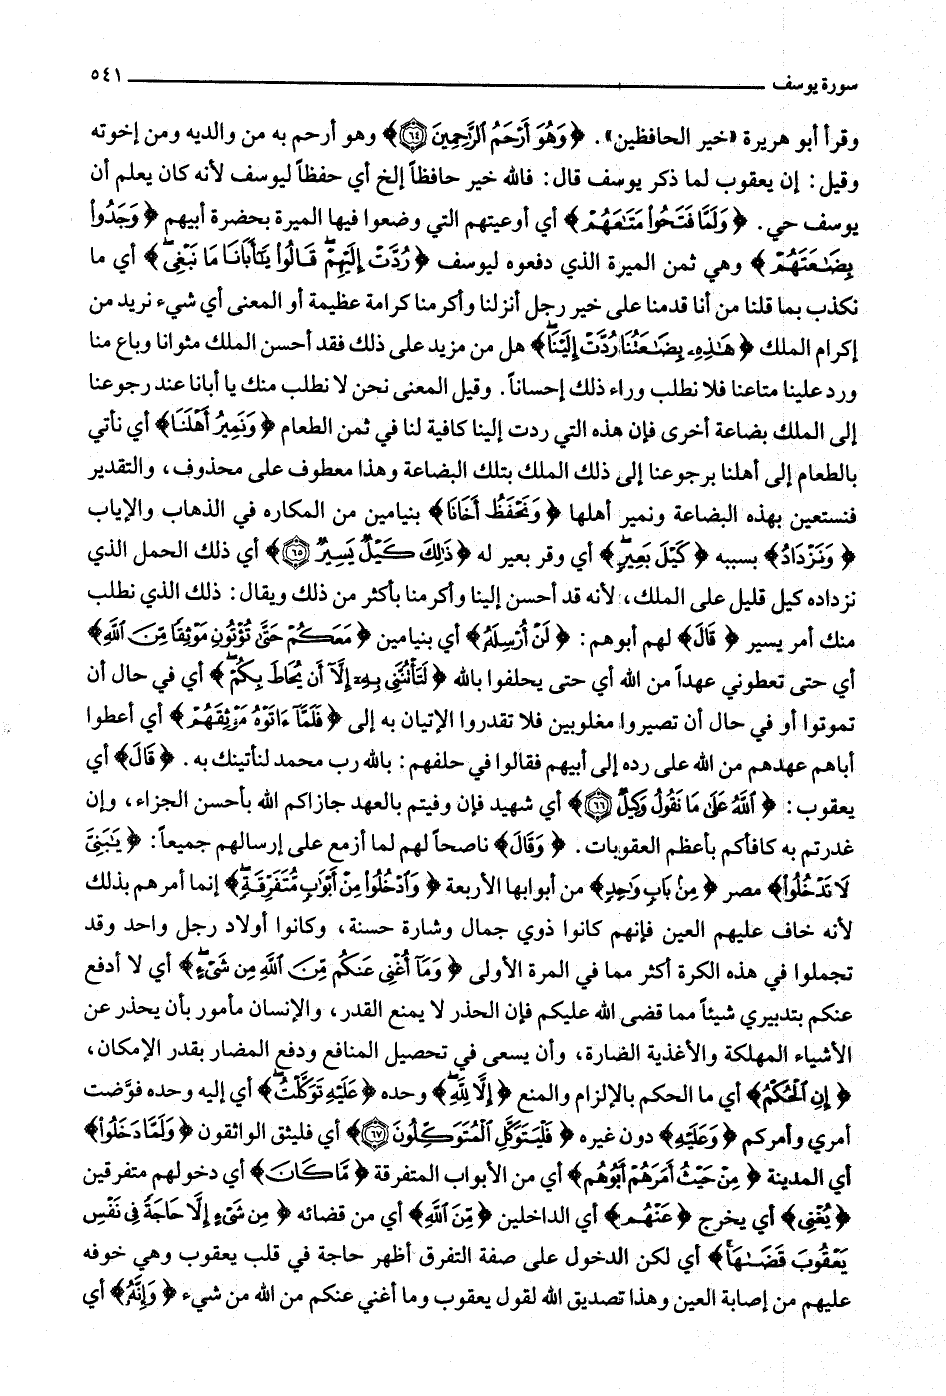 سورة يوسف ٥٤١
وقرأ أبو هريرة «خير الحافظين». ﴿وَهُوَ أَرْحَمُ ٱلرَّٰحِمِينَ ﴿٦٤﴾﴾ وهو أرحم به من والديه ومن إخوته
وقيل: إن يعقوب لما ذكر يوسف قال: فالله خير حافظاً إلخ أي حفظاً ليوسف لأنه كان يعلم أن
يوسف حي. ﴿وَلَمَّا فَتَحُواْ مَتَٰعَهُمْ﴾ أي أوعيتهم التي وضعوا فيها الميرة بحضرة أبيهم ﴿وَجَدُواْ
بِضَٰعَتَهُمْ﴾ وهي ثمن الميرة الذي دفعوه ليوسف ﴿رُدَّتْ إِلَيْهِمْۖ قَالُواْ يَٰٓأَبَانَا مَا نَبْغِىۖ﴾ أي ما
نكذب بما قلنا من أنا قدمنا على خير رجل أنزلنا وأكرمنا كرامة عظيمة أو المعنى أي شيء نريد من
إكرام الملك ﴿هَٰذِهِۦ بِضَٰعَتُنَا رُدَّتْ إِلَيْنَاۖ﴾ هل من مزيد على ذلك فقد أحسن الملك مثوانا وباع منا
ورد علينا متاعنا فلا نطلب وراء ذلك إحساناً. وقيل المعنى نحن لا نطلب منك يا أبانا عند رجوعنا
إلى الملك بضاعة أخرى فإن هذه التي ردت إلينا كافية لنا في ثمن الطعام ﴿وَنَمِيرُ أَهْلَنَا﴾ أي نأتي
بالطعام إلى أهلنا برجوعنا إلى ذلك الملك بتلك البضاعة وهذا معطوف على محذوف، والتقدير
فنستعين بهذه البضاعة ونمير أهلها ﴿وَنَحْفَظُ أَخَانَا﴾ بنيامين من المكاره في الذهاب والإياب
﴿وَنَزْدَادُ﴾ بسببه ﴿كَيْلَ بَعِيرٍۖ﴾ أي وقر بعير له ﴿ذَٰلِكَ كَيْلٌ يَسِيرٌ ﴿٦٥﴾﴾ أي ذلك الحمل الذي
نزداده كيل قليل على الملك، لأنه قد أحسن إلينا وأكرمنا بأكثر من ذلك ويقال: ذلك الذي نطلب
منك أمر يسير ﴿قَالَ﴾ لهم أبوهم: ﴿لَنْ أُرْسِلَهُۥ﴾ أي بنيامين ﴿مَعَكُمْ حَتَّىٰ تُؤْتُونِ مَوْثِقًا مِّنَ ٱللَّهِ﴾
أي حتى تعطوني عهداً من الله أي حتى يحلفوا بالله ﴿لَتَأْتُنَّنِى بِهِۦٓ إِلَّآ أَن يُحَاطَ بِكُمْۖ﴾ أي في حال أن
تموتوا أو في حال أن تصيروا مغلوبين فلا تقدروا الإتيان به إلى ﴿فَلَمَّآ ءَاتَوْهُ مَوْثِقَهُمْ﴾ أي أعطوا
أباهم عهدهم من الله على رده إلى أبيهم فقالوا في حلفهم: بالله رب محمد لنأتينك به. ﴿قَالَ﴾ أي
يعقوب: ﴿ٱللَّهُ عَلَىٰ مَا نَقُولُ وَكِيلٌ ﴿٦٦﴾﴾ أي شهيد فإن وفيتم بالعهد جازاكم الله بأحسن الجزاء، وإن
غدرتم به كافأكم بأعظم العقوبات. ﴿وَقَالَ﴾ ناصحاً لهم لما أزمع على إرسالهم جميعاً: ﴿يَٰبَنِىَّ
لَا تَدْخُلُواْ﴾ مصر ﴿مِنۢ بَابٍ وَٰحِدٍ﴾ من أبوابها الأربعة ﴿وَٱدْخُلُواْ مِنْ أَبْوَٰبٍ مُّتَفَرِّقَةٍۖ﴾ إنما أمرهم بذلك
لأنه خاف عليهم العين فإنهم كانوا ذوي جمال وشارة حسنة، وكانوا أولاد رجل واحد وقد
تجملوا في هذه الكرة أكثر مما في المرة الأولى ﴿وَمَآ أُغْنِى عَنكُم مِّنَ ٱللَّهِ مِن شَىْءٍۖ﴾ أي لا أدفع
عنكم بتدبيري شيئاً مما قضى الله عليكم فإن الحذر لا يمنع القدر، والإنسان مأمور بأن يحذر عن
الأشياء المهلكة والأغذية الضارة، وأن يسعى في تحصيل المنافع ودفع المضار بقدر الإمكان،
﴿إِنِ ٱلْحُكْمُ﴾ أي ما الحكم بالإلزام والمنع ﴿إِلَّا لِلَّهِۖ﴾ وحده ﴿عَلَيْهِ تَوَكَّلْتُۖ﴾ أي إليه وحده فوَّضت
أمري وأمركم ﴿وَعَلَيْهِ﴾ دون غيره ﴿فَلْيَتَوَكَّلِ ٱلْمُتَوَكِّلُونَ ﴿٦٧﴾﴾ أي فليثق الواثقون ﴿وَلَمَّا دَخَلُواْ﴾
أي المدينة ﴿مِنْ حَيْثُ أَمَرَهُمْ أَبُوهُم﴾ أي من الأبواب المتفرقة ﴿مَّا كَانَ﴾ أي دخولهم متفرقين
﴿يُغْنِى﴾ أي يخرج ﴿عَنْهُم﴾ أي الداخلين ﴿مِّنَ ٱللَّهِ﴾ أي من قضائه ﴿مِن شَىْءٍ إِلَّا حَاجَةً فِى نَفْسِ
يَعْقُوبَ قَضَىٰهَاۚ﴾ أي لكن الدخول على صفة التفرق أظهر حاجة في قلب يعقوب وهي خوفه
عليهم من إصابة العين وهذا تصديق الله لقول يعقوب وما أغني عنكم من الله من شيء ﴿وَإِنَّهُۥ﴾ أي